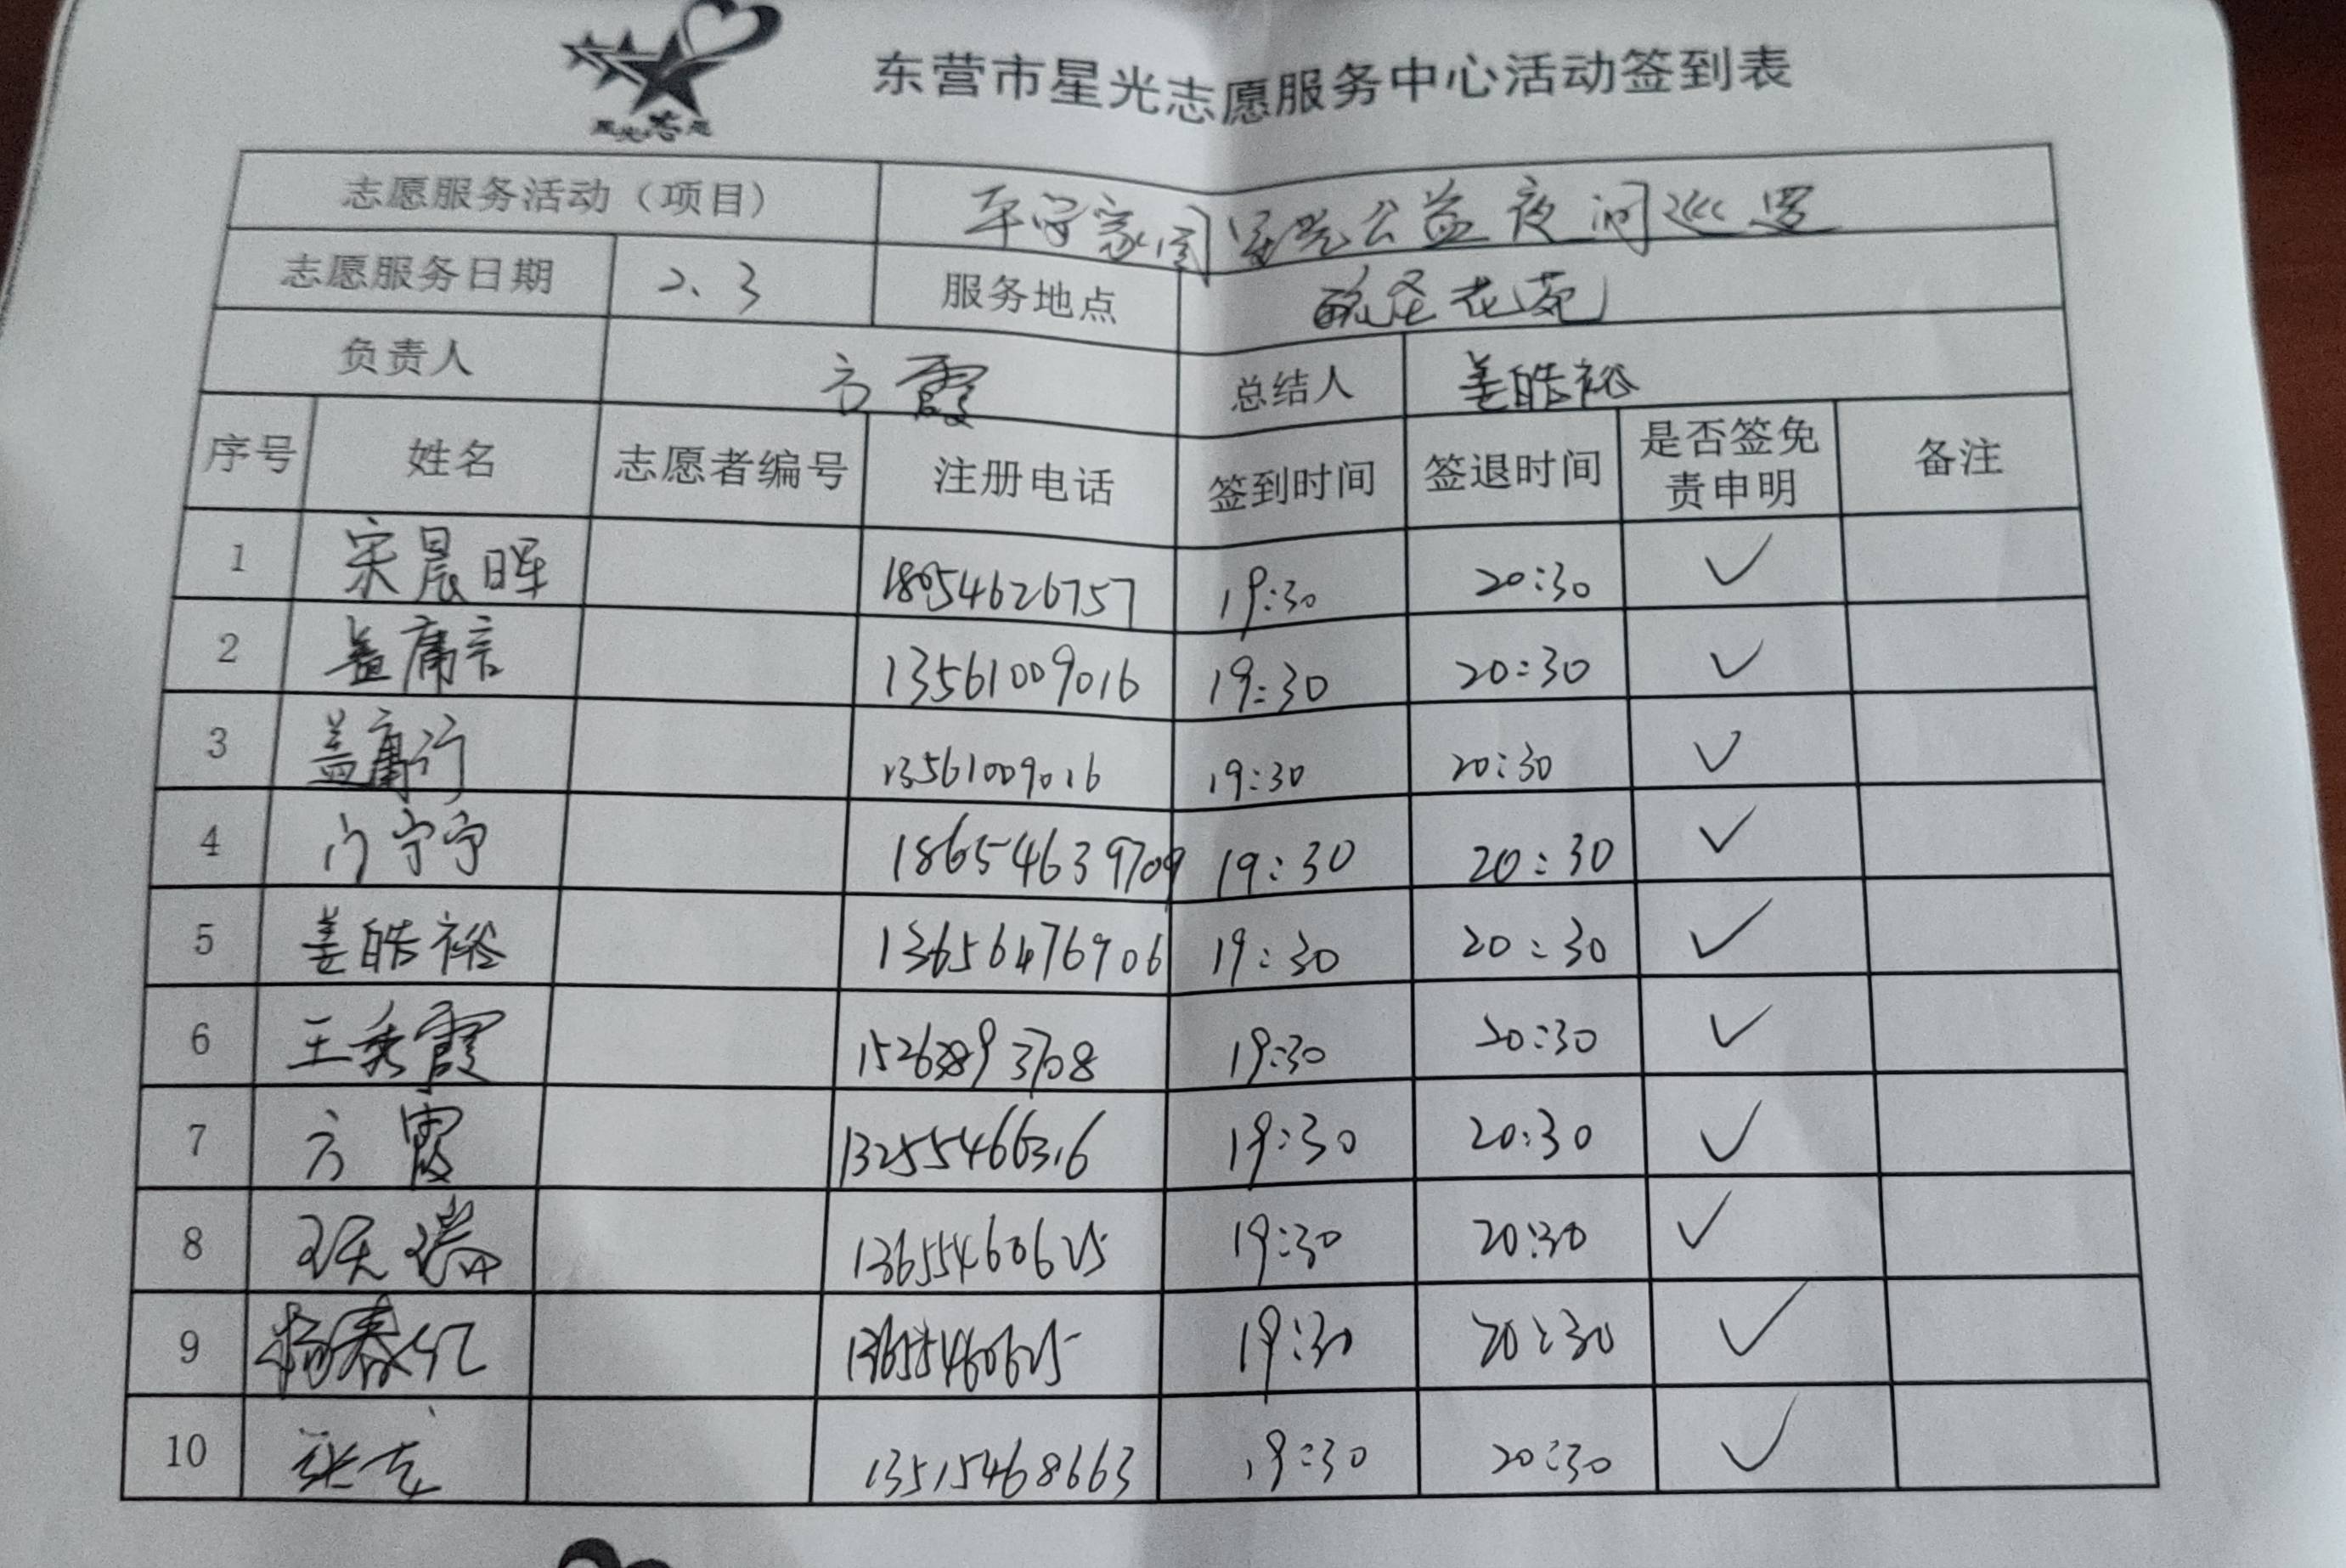 星光志愿
东营市星光志愿服务中心活动签到表
志愿服务活动（项目） 平安家园星光公益夜间巡逻
志愿服务日期 2、3 服务地点 花苑
负责人 方霞 总结人 姜皓裕
序号 姓名 志愿者编号 注册电话 签到时间 签退时间 是否签免责申明 备注
1 宋晨晖 18954626757 19:30 20:30 ✓
2 盖庸言 13561009016 19:30 20:30 ✓
3 盖庸行 13561009016 19:30 20:30 ✓
4 门宁宁 18654639709 19:30 20:30 ✓
5 姜皓裕 13656476906 19:30 20:30 ✓
6 王秀霞 15263893708 19:30 20:30 ✓
7 方霞 13255466316 19:30 20:30 ✓
8 瑞 13655460625 19:30 20:30 ✓
9 杨春 13655460625 19:30 20:30 ✓
10 张 13515468663 19:30 20:30 ✓